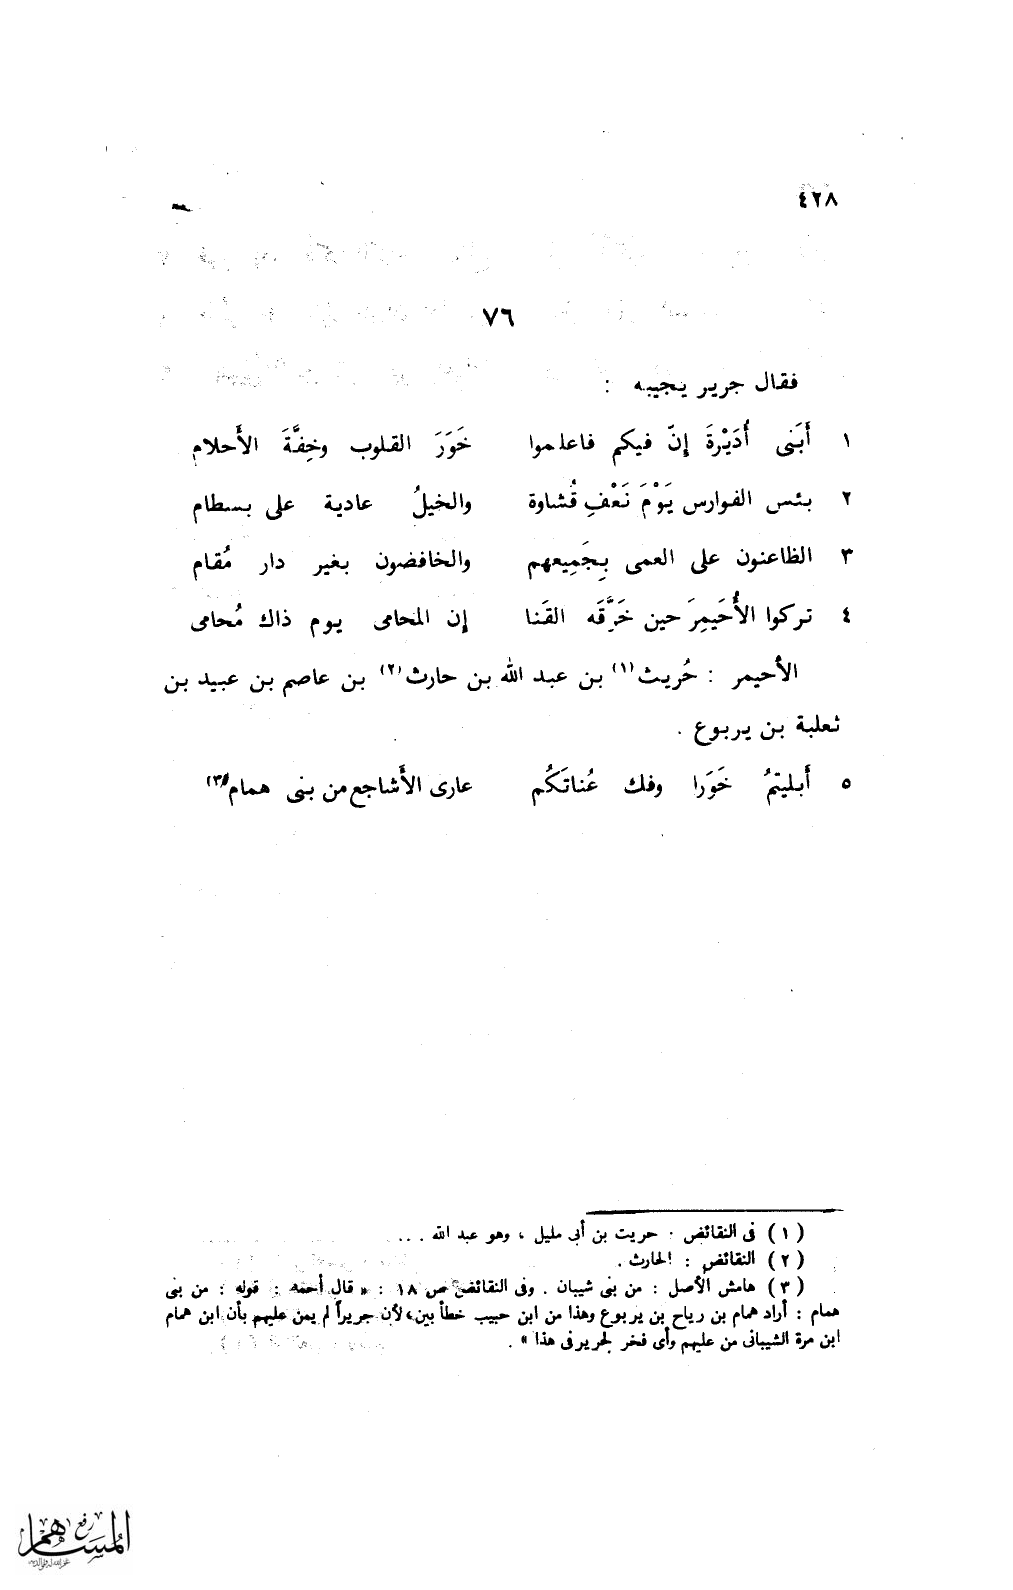 ٤٢٨
٧٦
فقال جرير يجيبه :
١ أَبَنى أُدَيْرةَ إِنّ فيكم فاعلموا خَوَرَ القلوب وخِفَّةَ الأَحلام
٢ بئس الفوارس يَوْمَ نَعْفِ قُشاوة والخيلُ عادية على بسطام
٣ الظاعنون على العمى بِجَمِيعهم والخافضون بغير دار مُقام
٤ تركوا الأُحَيمِرَ حين خَرَّقَه القَنا إن المحامى يوم ذاك مُحامى
الأُحيمر : حُريث (١) بن عبد الله بن حارث (٢) بن عاصم بن عبيد بن
ثعلبة بن يربوع .
٥ أَبليتمُ خَوَرا وفك عُناتَكُم عارى الأَشاجع من بنى همام (٣)
( ١ ) فى النقائض : حريت بن أبى مليل ، وهو عبد الله . . .
( ٢ ) النقائض : الحارث .
( ٣ ) هامش الأصل : من بنى شيبان . وفى النقائض ص ١٨ : « قال أحمد : قوله : من بنى
همام : أراد همام بن رياح بن يربوع وهذا من ابن حبيب خطأ بين، لأن جريراً لم يمن عليهم بأن ابن همام
ابن مرة الشيبانى من عليهم وأى فخر لجرير فى هذا » .
رفع
المساهم